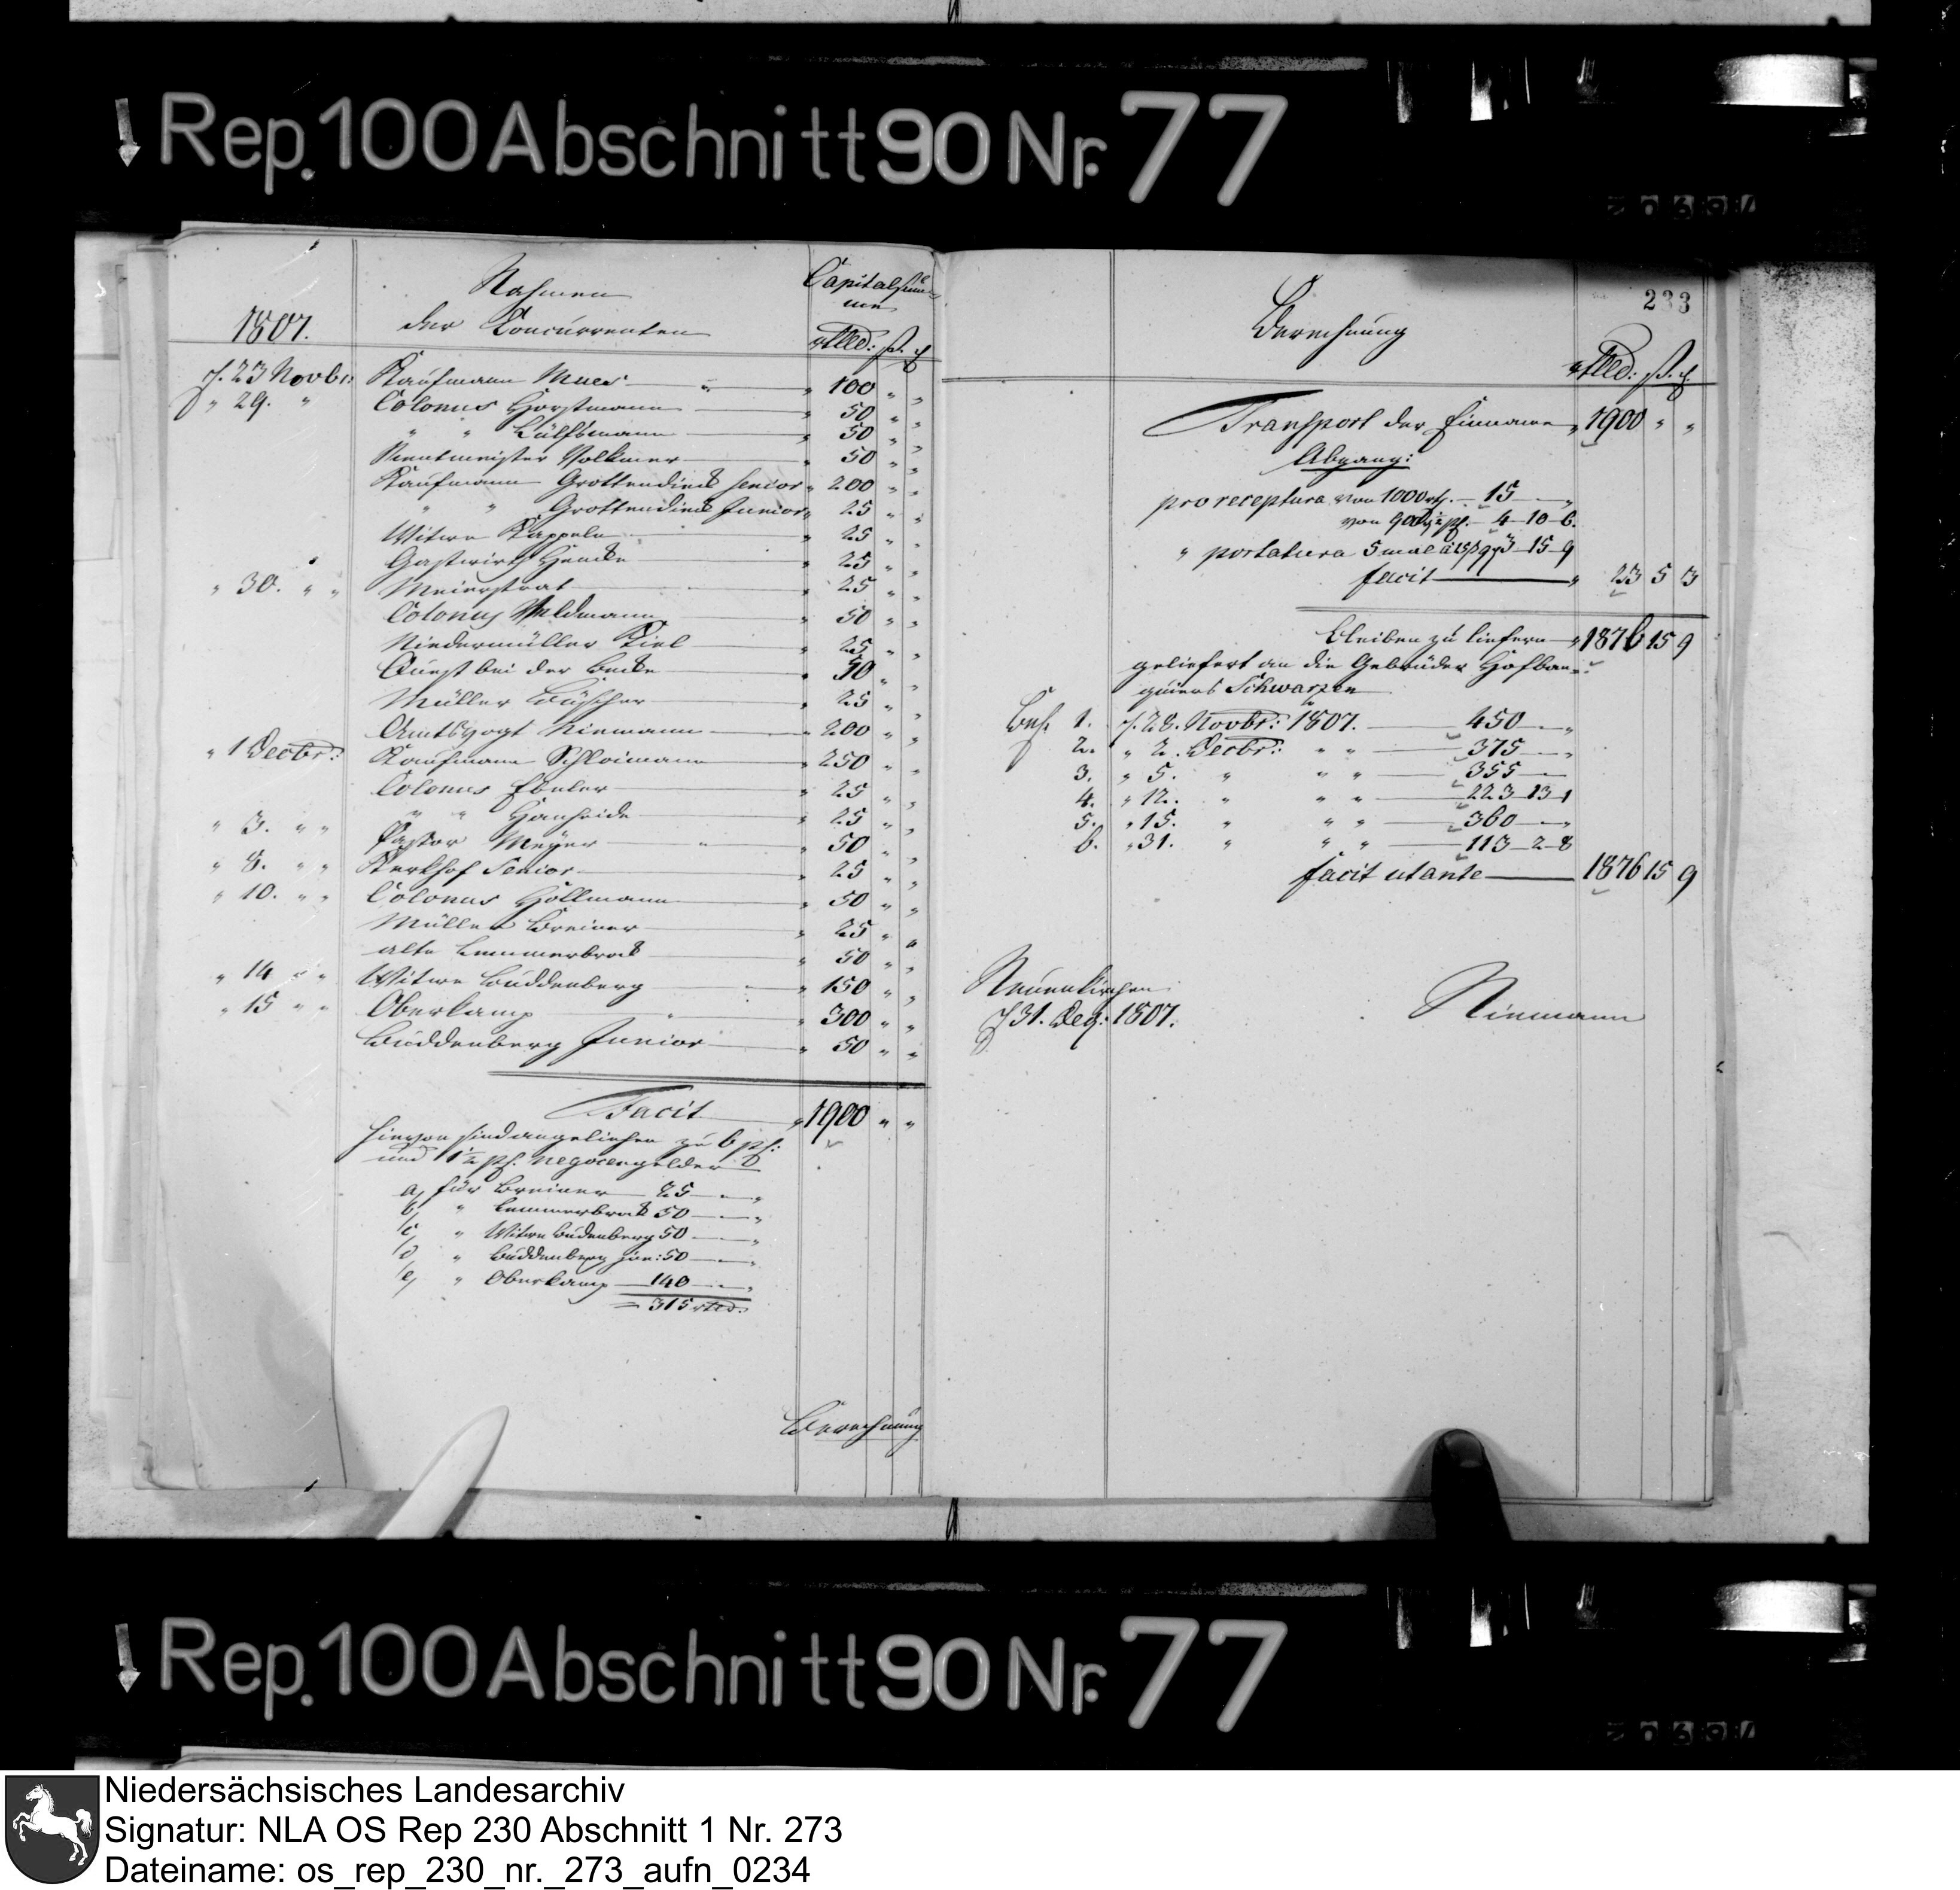 Rep. 100 Abschnitt 90 Nr. 77
1807.
Nahmen
der Concurrenten
Capitalsum-
me
rtlr: ß. ₰
d. 23 Novbr: Kaufmann Mues — " 100 " "
" 29. " Colonus Horstmann — " 50 " "
" " Lülfsmann — " 50 " "
Rentmeister Volkmer — " 50 " "
Kaufmann Grottendieck senior " 200 " "
" " Grottendieck Junior " 25 " "
Witwe Kappeln — " 25 " "
Gastwirth Hencke — " 25 " "
" 30. " " Meierstrat — " 25 " "
Colonus Veldmann — " 50 " "
Niedermüller Kiel — " 25 " "
Quest bei der Becke — " 50 " "
Müller Büscher — " 25 " "
Amtsvogt Niemann — " 200 " "
" 1 Decbr: Kaufmann Schloimann — " 250 " "
Colonus Ebeler — " 25 " "
" " Hanheide — " 25 " "
" 3. " " Pastor Meyer — " 50 " "
" 8. " " Kerkhof Senior — " 25 " "
" 10. " " Colonus Hollmann — " 50 " "
Müller Breiner — " 25 " "
alte Lemmerbrock — " 50 " "
" 14 " " Witwe Buddenberg — " 150 " "
" 15 " " Oberkamp — " 300 " "
Buddenberg Junior — " 50 " "
Facit — " 1900 " "
hievon sind angeliehen zu 6 pf:
und 1½ pf. negocengelder
a, für Breiner — 25 — "
b, " Lemmerbrock 50 — "
c, " Witwe Budenberg 50 — "
d, " Buddenberg jun: 50 — "
e, " Oberkamp — 140 — "
= 315 rtlr:
Berechnung
233
Berechnung
rtlr: ß. ₰.
Transport der Einname " 1900 " "
Abgang:
pro receptura von 1000 rt. — 15 — "
von 900 ½ pf. — 4 — 10 — 6.
" portatura 5 mal a 15 ß 9 ₰ 3 — 15 — 9
facit — " 23 5 3
bleiben zu liefern — " 1876 15 9
geliefert an die Gebrüder Hofban-
quiers Schwarzen
1. d. 28. Novbr: 1807. — 450 — "
2. " 2. Decbr: " " — 375 — "
3. " 5. " " " — 355 —
4. " 12. " " " — 223 13 1
5. " 15. " " " — 360 — "
6. " 31. " " " — 113 — 2 — 8
facit ut ante — 1876 15 9
Neuenkirchen
d 31. Dez: 1807.
Niemann
Rep. 100 Abschnitt 90 Nr. 77
Niedersächsisches Landesarchiv
Signatur: NLA OS Rep 230 Abschnitt 1 Nr. 273
Dateiname: os_rep_230_nr._273_aufn_0234